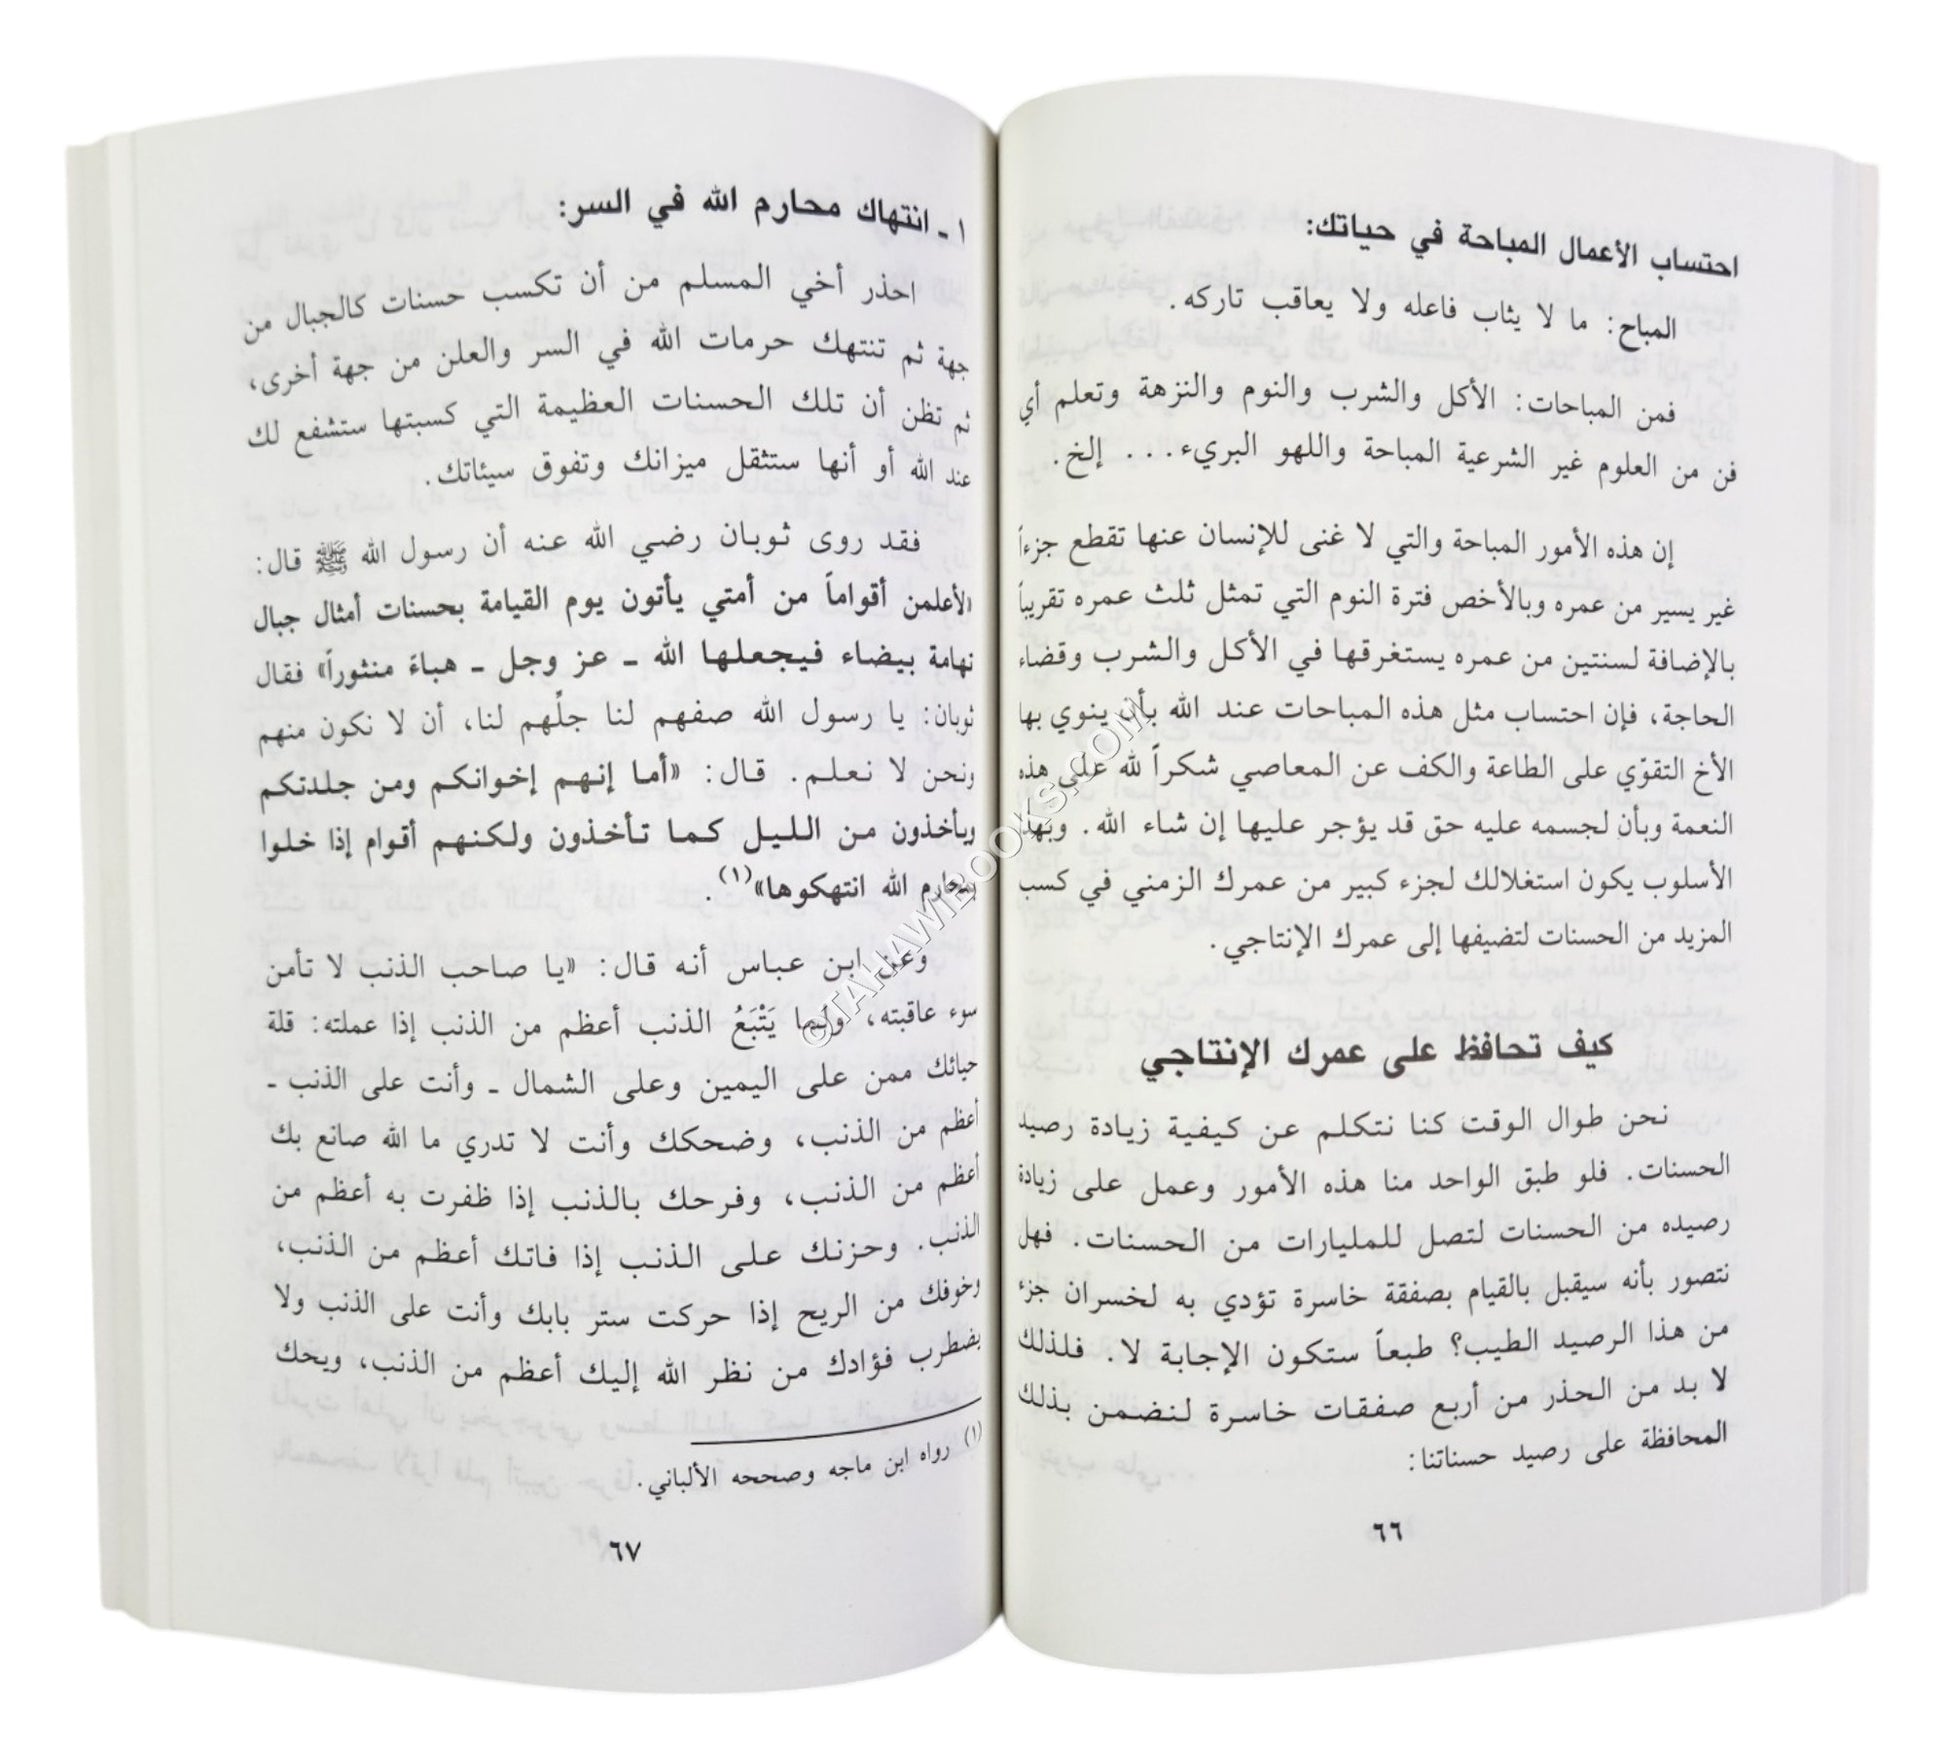 احتساب الأعمال المباحة في حياتك:
المباح: ما لا يثاب فاعله ولا يعاقب تاركه.
فمن المباحات: الأكل والشرب والنوم والنزهة وتعلم أي
فن من العلوم غير الشرعية المباحة واللهو البريء... إلخ.
إن هذه الأمور المباحة والتي لا غنى للإنسان عنها تقطع جزءاً
غير يسير من عمره وبالأخص فترة النوم التي تمثل ثلث عمره تقريباً
بالإضافة لسنتين من عمره يستغرقها في الأكل والشرب وقضاء
الحاجة، فإن احتساب مثل هذه المباحات عند الله بأن ينوي بها
الأخ التقوّي على الطاعة والكف عن المعاصي شكراً لله على هذه
النعمة وبأن لجسمه عليه حق قد يؤجر عليها إن شاء الله. وبهذا
الأسلوب يكون استغلالك لجزء كبير من عمرك الزمني في كسب
المزيد من الحسنات لتضيفها إلى عمرك الإنتاجي.
كيف تحافظ على عمرك الإنتاجي
نحن طوال الوقت كنا نتكلم عن كيفية زيادة رصيد
الحسنات. فلو طبق الواحد منا هذه الأمور وعمل على زيادة
رصيده من الحسنات لتصل للمليارات من الحسنات. فهل
نتصور بأنه سيقبل بالقيام بصفقة خاسرة تؤدي به لخسران جزء
من هذا الرصيد الطيب؟ طبعاً ستكون الإجابة لا. فلذلك
لا بد من الحذر من أربع صفقات خاسرة لنضمن بذلك
المحافظة على رصيد حسناتنا:
٦٦
١ ـ انتهاك محارم الله في السر:
احذر أخي المسلم من أن تكسب حسنات كالجبال من
جهة ثم تنتهك حرمات الله في السر والعلن من جهة أخرى،
ثم تظن أن تلك الحسنات العظيمة التي كسبتها ستشفع لك
عند الله أو أنها ستثقل ميزانك وتفوق سيئاتك.
فقد روى ثوبان رضي الله عنه أن رسول الله ﷺ قال:
«لأعلمن أقواماً من أمتي يأتون يوم القيامة بحسنات أمثال جبال
تهامة بيضاء فيجعلها الله ـ عز وجل ـ هباءً منثوراً» فقال
ثوبان: يا رسول الله صفهم لنا جلِّهم لنا، أن لا نكون منهم
ونحن لا نعلم. قال: «أما إنهم إخوانكم ومن جلدتكم
ويأخذون من الليل كما تأخذون ولكنهم أقوام إذا خلوا
بمحارم الله انتهكوها»(١).
وعن ابن عباس أنه قال: «يا صاحب الذنب لا تأمن
سوء عاقبته، ولما يَتْبَعُ الذنب أعظم من الذنب إذا عملته: قلة
حيائك ممن على اليمين وعلى الشمال ـ وأنت على الذنب ـ
أعظم من الذنب، وضحكك وأنت لا تدري ما الله صانع بك
أعظم من الذنب، وفرحك بالذنب إذا ظفرت به أعظم من
الذنب. وحزنك على الذنب إذا فاتك أعظم من الذنب،
وخوفك من الريح إذا حركت ستر بابك وأنت على الذنب ولا
يضطرب فؤادك من نظر الله إليك أعظم من الذنب، ويحك
(١) رواه ابن ماجه وصححه الألباني.
٦٧
©TAHAWIBOOKS.COM